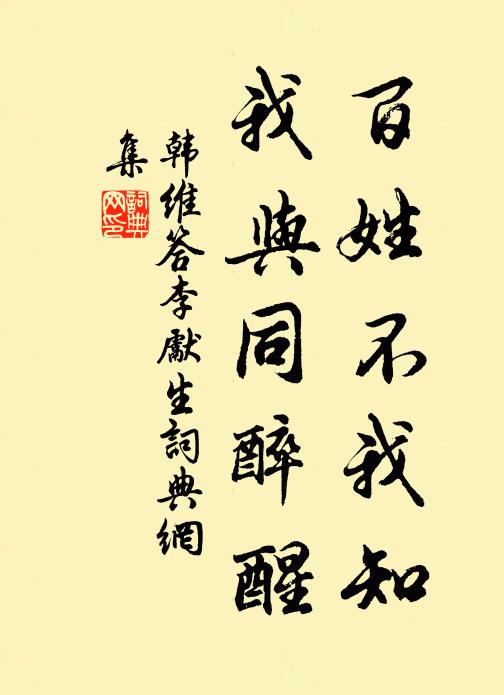 百姓不我知
我與同醉醒
韩維答李獻生詞典網
集
詞典
网印